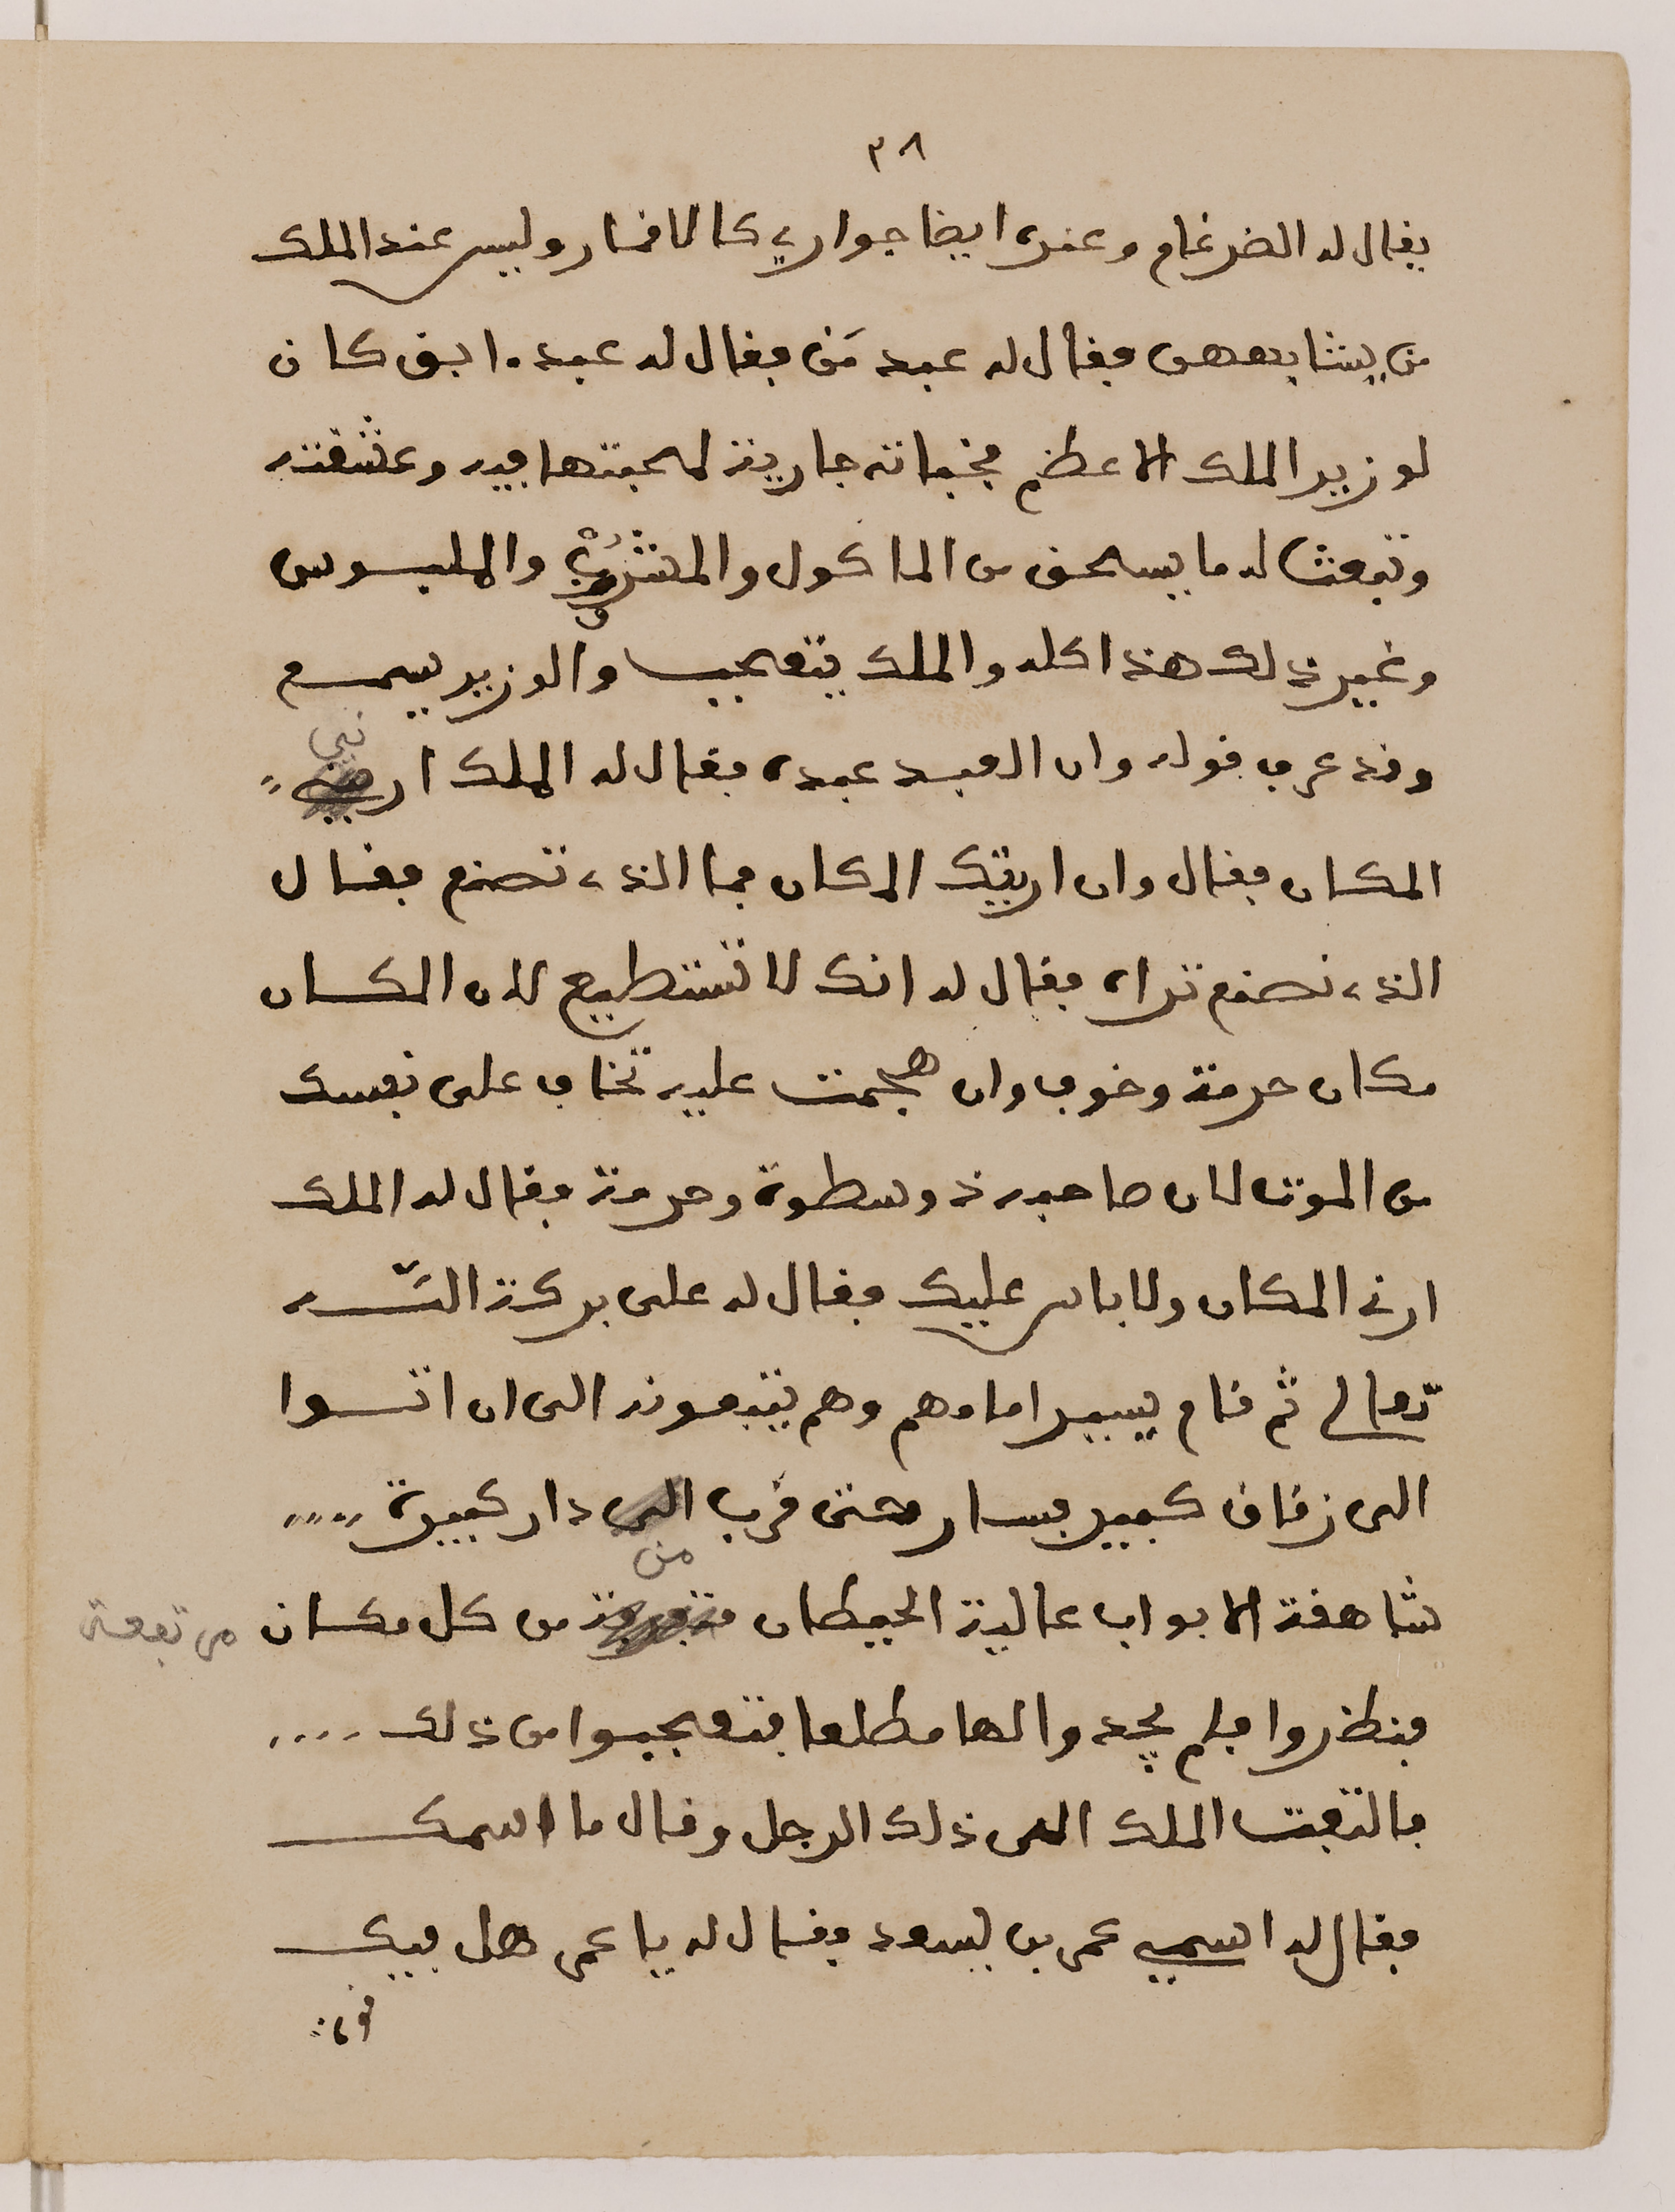 ٣٨
يقال له الضرغام وعنده ايضا جواري كالاقمار وليس عند الملك
من يشابههن فقال له عبد مَن فقال له عبد ابق كان
لوزير الملك الاعظم فخباته جارية لمحبتها فيه وعشقته
وتبعث له ما يستحق من الماكول والمشروب والملبوس
وغير ذلك هذا كله والملك يتعجب والوزير يسمع
وقد عرف قوله وان العبد عبده فقال له الملك ارني
المكان فقال وان اريتك المكان فما الذي تصنع فقال
الذي نصنع تراه فقال له انك لا تستطيع لان المكان
مكان حرمة وخوف وان هجمت عليه تخاف على نفسك
من الموت لان صاحبه ذو سطوة وحرمة فقال له الملك
ارني المكان ولا باس عليك فقال له على بركة اللّـه
تعالى ثم قام يسير امامهم وهم يتبعونه الى ان اتوا
الى زقاق كبير فسار حتى قرب الى من دار كبيرة
شاهقة الابواب عالية الحيطان من كل مكان مرتفعة
فنظروا فلم يجدوا لها مطلعا فتعجبوا من ذلك ....
فالتفت الملك الى ذلك الرجل وقال ما اسمك
فقال له اسمي عمر بن لسعود فقال له يا عمر هل فيك
قوة